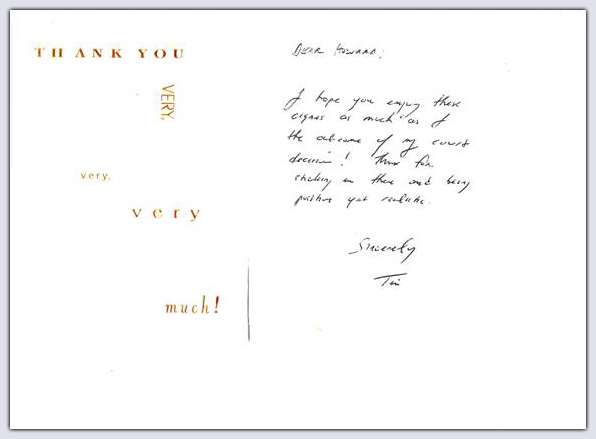 THANK YOU
VERY,
very,
very
much!
Dear Howard:
I hope you enjoy these
cigars as much as I
the outcome of my court
decision! Thanx for
sticking in there and being
positive yet realistic.
Sincerely
Tim